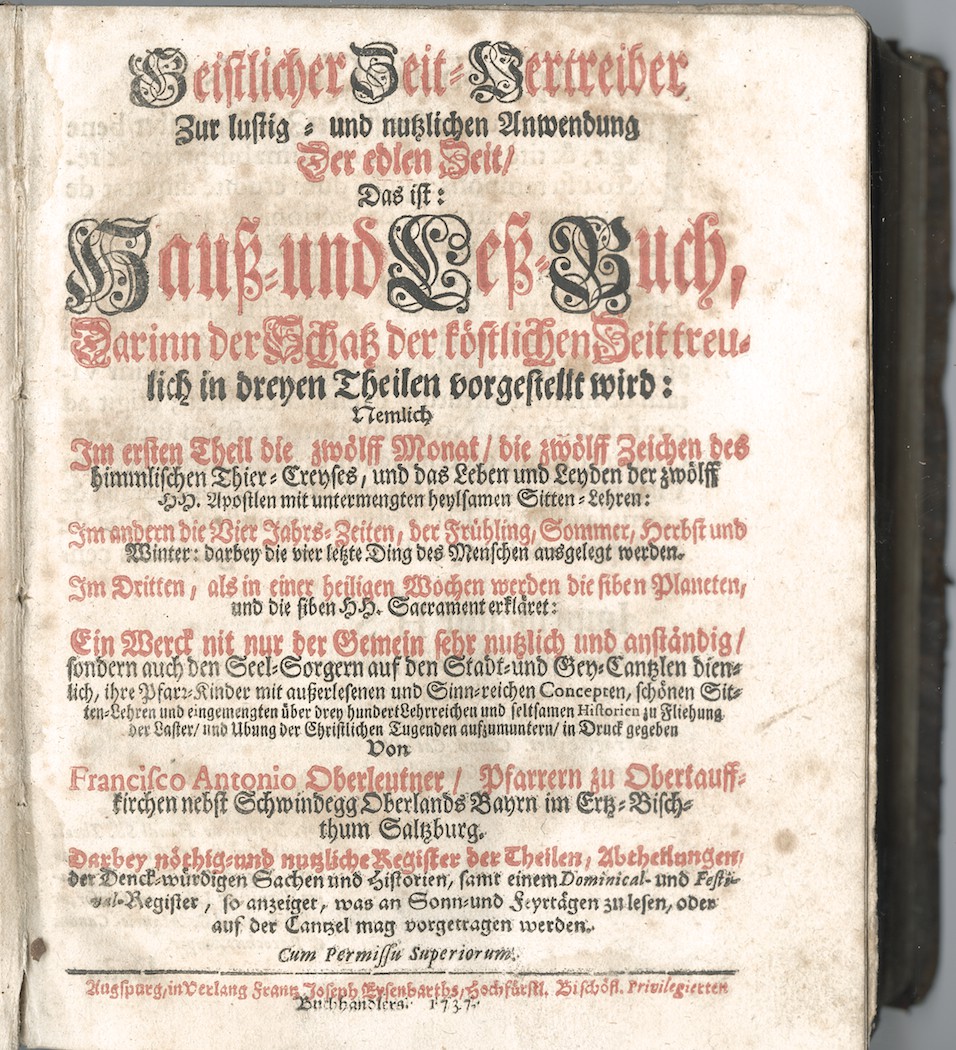 Geistlicher Zeit-Vertreiber
Zur lustig- und nutzlichen Anwendung
Der edlen Zeit/
Das ist:
Hauß-und Leß-Buch,
Darinn der Schatz der köstlichen Zeit treu-
lich in dreyen Theilen vorgestellt wird:
Nemlich
Im ersten Theil die zwölff Monat/ die zwölff Zeichen des
himmlischen Thier-Creyses, und das Leben und Leyden der zwölff
HH. Apostlen mit untermengten heylsamen Sitten-Lehren:
Im andern die Vier Jahrs-Zeiten, der Frühling, Sommer, Herbst und
Winter: darbey die vier letzte Ding des Menschen ausgelegt werden.
Im Dritten, als in einer heiligen Wochen werden die siben Planeten,
und die siben HH. Sacrament erkläret:
Ein Werck nit nur der Gemein sehr nutzlich und anständig/
sondern auch den Seel-Sorgern auf den Stadt-und Gey-Cantzlen dien-
lich, ihre Pfarr-Kinder mit außerlesenen und Sinn-reichen Concepten, schönen Sit-
ten-Lehren und eingemengten über drey hundert Lehrreichen und seltsamen Historien zu Fliehung
der Laster/ und Ubung der Christlichen Tugenden aufzumuntern/ in Druck gegeben
Von
Francisco Antonio Oberleutner/ Pfarrern zu Obertauff-
kirchen nebst Schwindegg Oberlands Bayrn im Ertz-Bisch-
thum Saltzburg.
Darbey nöthig-und nutzliche Register der Theilen, Abtheilungen,
der Denck-würdigen Sachen und Historien, samt einem Dominical- und Festi-
val-Register, so anzeiget, was an Sonn-und Feyrtägen zu lesen, oder
auf der Cantzel mag vorgetragen werden.
Cum Permissu Superiorum.
Augspurg, in Verlang Frantz Joseph Eysenbarths, Hochfürstl. Bischöfl. Privilegierten
Buchhandlers. 1737.